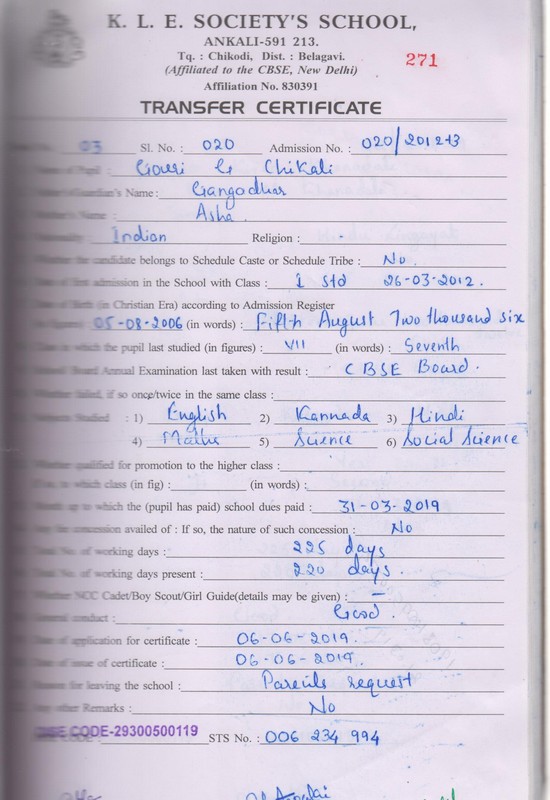 K. L. E. SOCIETY'S SCHOOL,
ANKALI-591 213.
Tq. : Chikodi, Dist. : Belagavi.
271
(Affiliated to the CBSE, New Delhi)
Affiliation No. 830391
TRANSFER CERTIFICATE
03 Sl. No. : 020 Admission No. : 020/2012-13
Name of Pupil : Gouri G Chikali
Guardian's Name : Gangodhar
Name : Asha.
Indian Religion : -
Whether the candidate belongs to Schedule Caste or Schedule Tribe : No.
Date of first admission in the School with Class : 1 std 26-03-2012.
Date of Birth (in Christian Era) according to Admission Register
05-08-2006 (in words) : Fifth August Two thousand six
in which the pupil last studied (in figures) : VII (in words) : Seventh
Board Annual Examination last taken with result : CBSE Board.
Whether failed, if so once/twice in the same class :
Studied : 1) English 2) Kannada 3) Hindi
4) Maths 5) Science 6) Social Science
Whether qualified for promotion to the higher class :
If so, to which class (in fig) : (in words) :
Month up to which the (pupil has paid) school dues paid : 31-03-2019
Any fee concession availed of : If so, the nature of such concession : No
No. of working days : 225 days
No. of working days present : 220 days.
Whether NCC Cadet/Boy Scout/Girl Guide(details may be given) : -
General conduct : Good.
Date of application for certificate : 06-06-2019.
Date of issue of certificate : 06-06-2019.
Reason for leaving the school : Parents request
Any other Remarks : No
DISE CODE-29300500119 STS No. : 006 234 994